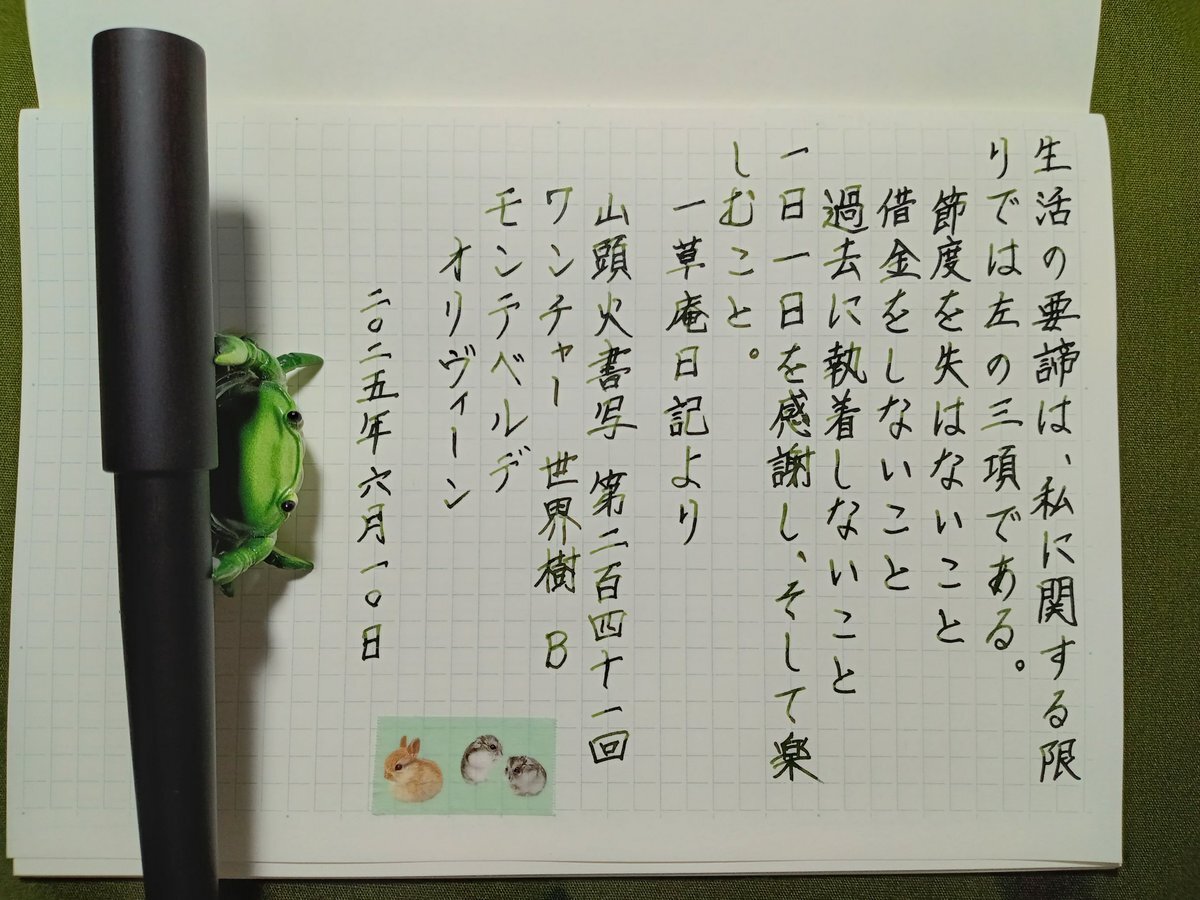 生活の要諦は、私に関する限
りでは左の三項である。
節度を失はないこと
借金をしないこと
過去に執着しないこと
一日一日を感謝し、そして楽
しむこと。
一草庵日記より
山頭火書写 第二百四十一回
ワンチャー 世界樹 B
モンテベルデ
オリヴィーン
二〇二五年六月一〇日